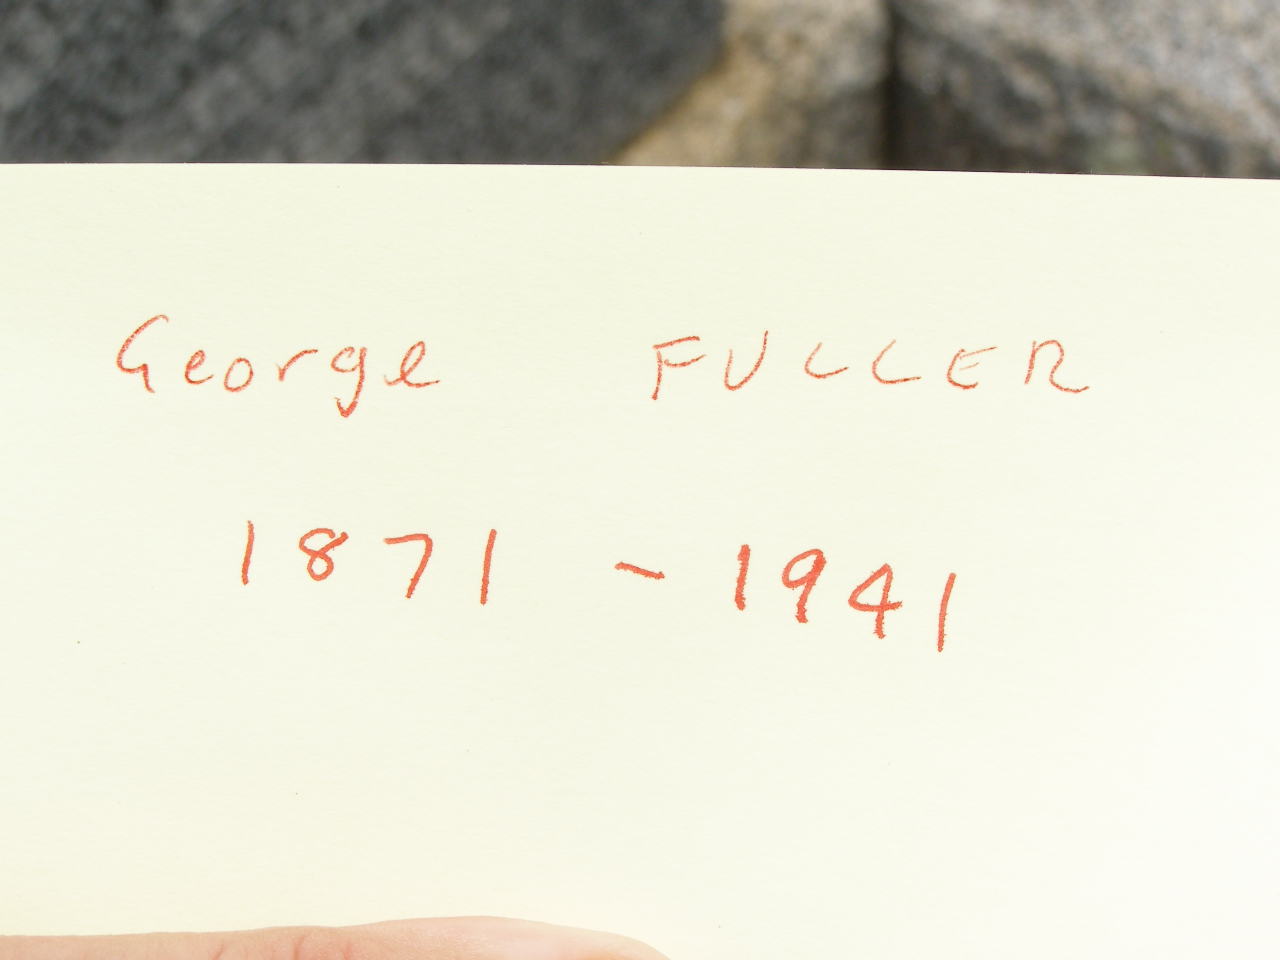 George FULLER
1871 - 1941